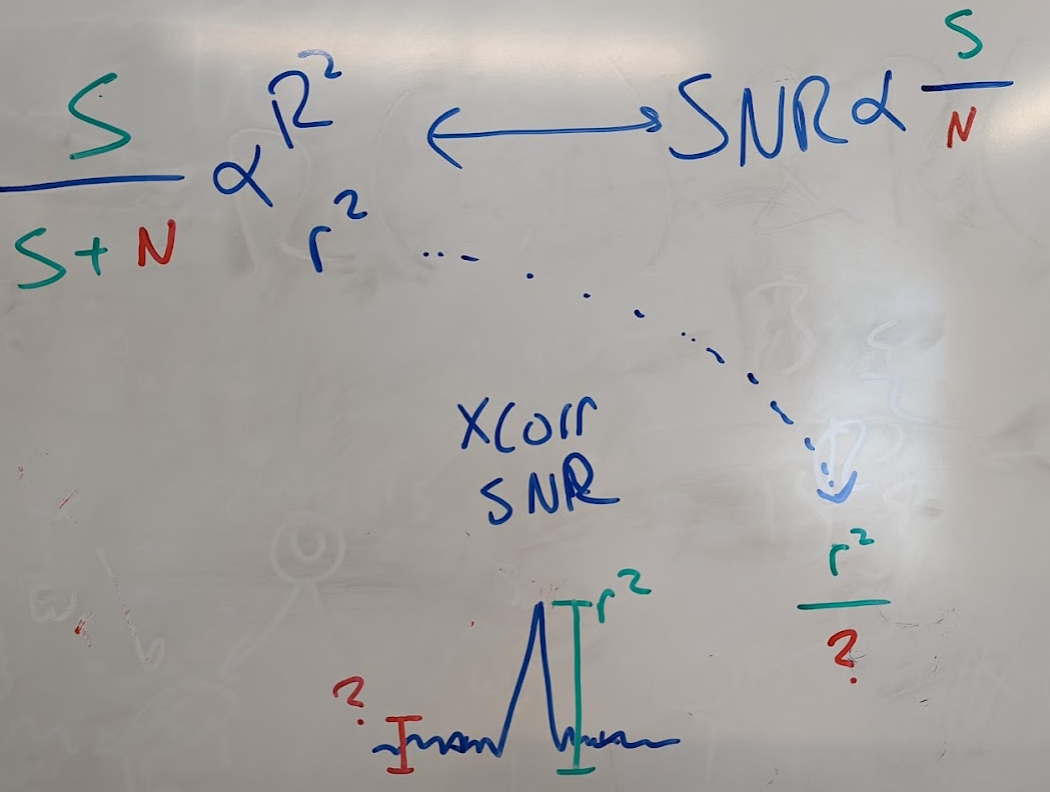 S / S + N ∝ R² ⟷ SNR ∝ S / N
r²
XCorr
SNR
r² / ?
r²
?